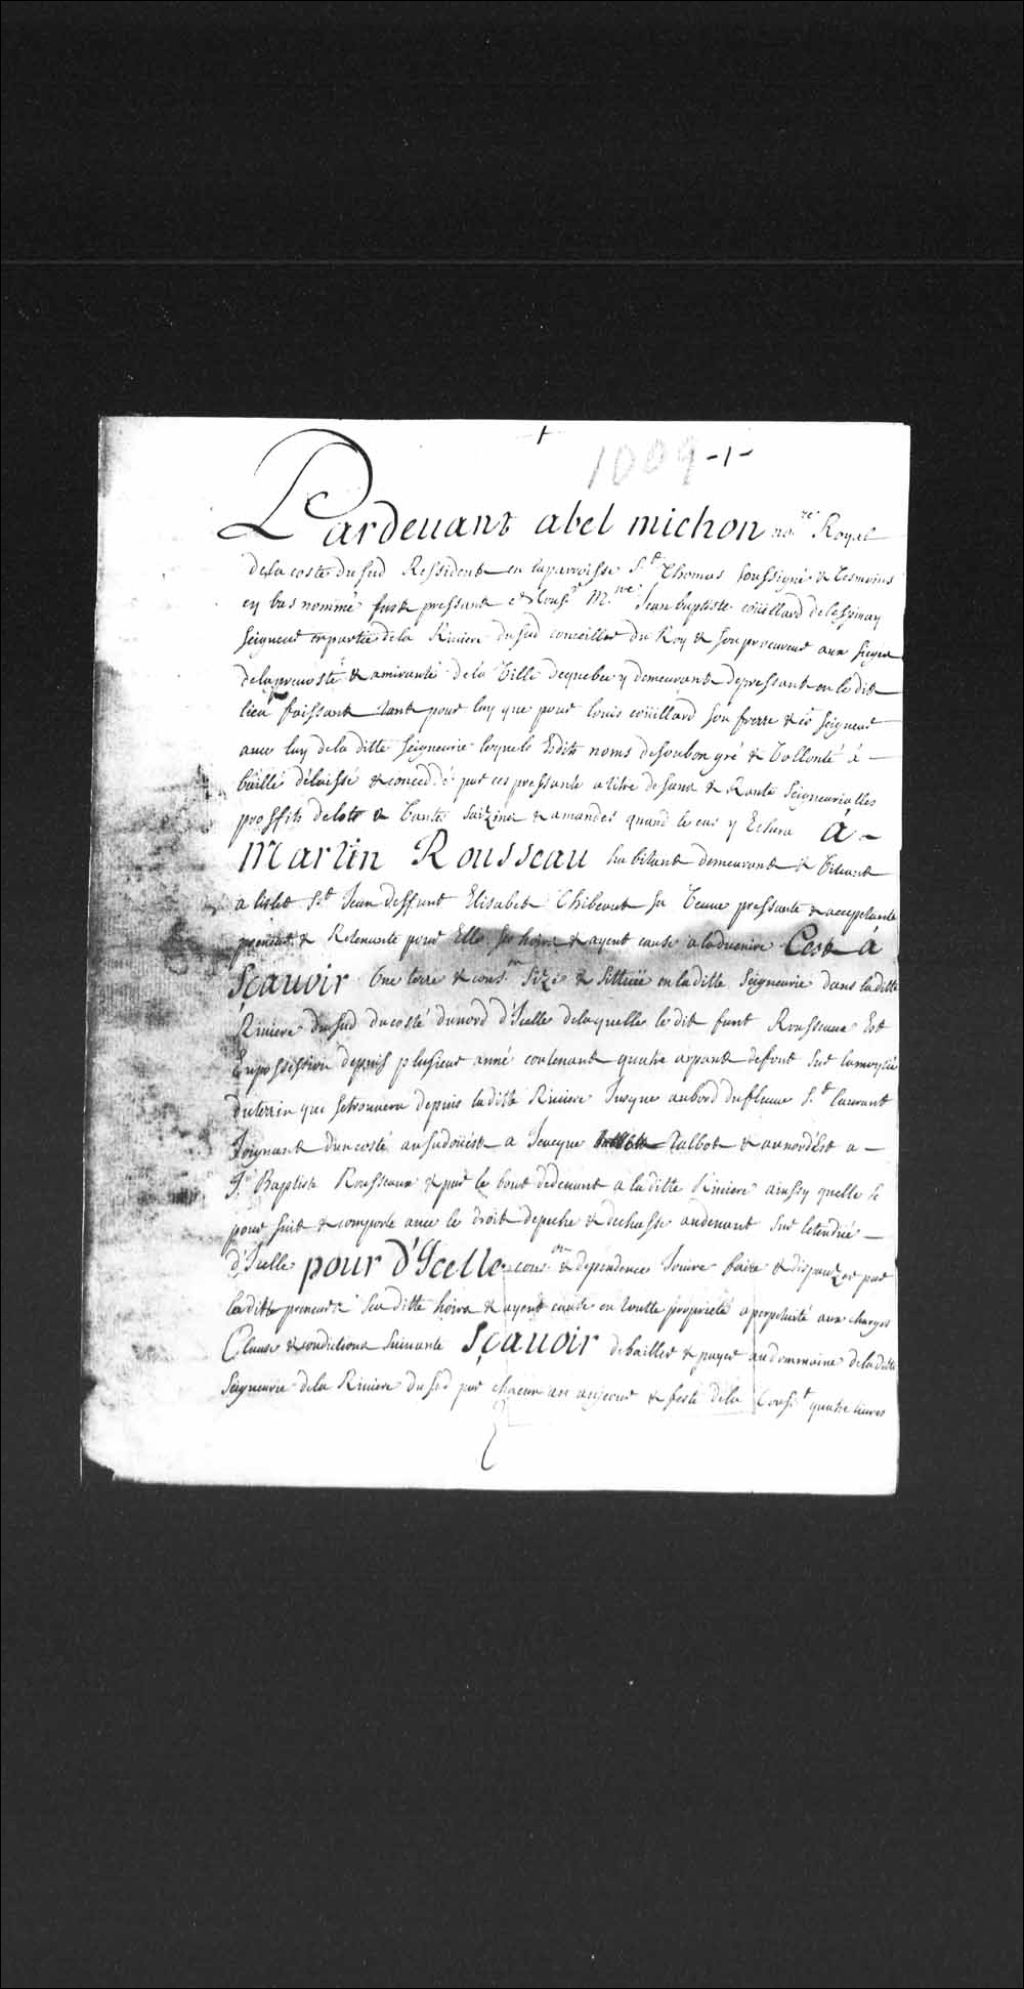 1009 -1-
Pardeuant abel michon no.re Royal
dela coste du sud Ressident en la parroisse S.t Thomas soussigné & Tesmoins
cy bas nommé fust pressant M.re Jean baptiste coüillard delespinay
seigneur en partie dela Riviere du sud conseiller du Roy & son procureur aux sieges
dela prevosté & amirauté dela Ville dequebec y demeurant depressant en le dit
lieu faissant tant pour luy que pour louis coüillard son frerre & co seigneur
avec luy dela ditte seigneurie lequele Esdits noms desonbon gré & Vollonté á
baillé délaissé & conceddé par ces pressante a titre de sans & Rante seigneurialles
proffits delots & Vante saizine & amandes quand le cas y Echera á
Martin Rousseau habitant demeurant & Vivant
a lislet S.t Jean deffunt Elisabet Thibeaut sa Veuve pressante & acceptante
preneur & Retenante pour Elle ses hoirs & ayent cause a laduenire Cest á
Sçauoir Une terre & cons.on size & sittuée en la ditte seigneurie dans la ditte
Riviere du sud du costé du nord d'Icelle delaquelle le dit funt Rousseaux Est
En possission depuis plusieur anné contenant quatre arpant defront sur la moytié
du terrin qui setrouvera depuis la ditte Riviere Jusque aubord dufleuve S.t laurant
Joignant d'un costé au sudoüest a Jacque Talbot & au nordEst a
J. Baptiste Rousseaux & par le bout dedevant a la ditte Riviere ainssy quelle se
pour suit & comporte avec le droit depeche & dechasse audevant sur letendüe
d'Icelle pour D'Jcelle cons.on & dependences Jouire faire & dispauzer par
laditte preneur sesditte hoirs & ayent cause en toutte proprieté aperpetuité aux charges
Clause & conditions suivante Sçauoir debailler & payer audommaine dela ditte
Seigneurie dela Riviere du sud par chacun an aujour & feste dela Touss.t quatre livres